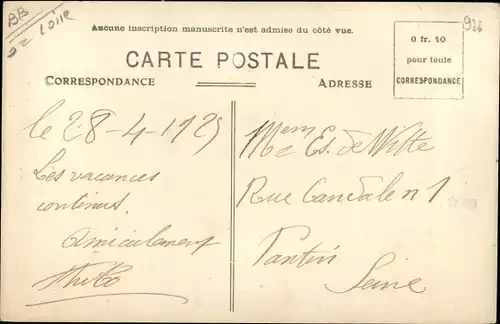 BB
Loire
926
Aucune inscription manuscrite n'est admise du côté vue.
0 fr. 10
pour toute
CORRESPONDANCE
CARTE POSTALE
CORRESPONDANCE
ADRESSE
le 28-4-1925
Les vacances
continues.
Amicalement
Mem Es. de Witte
Rue Candale n 1
Pantin
Seine